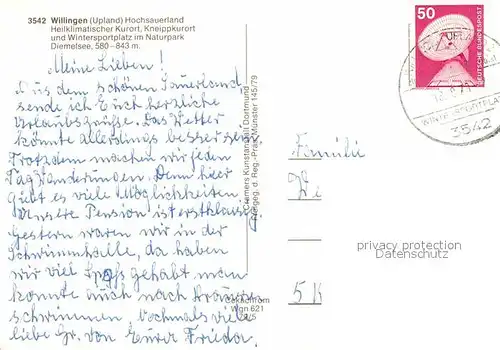 3542 Willingen (Upland) Hochsauerland
Heilklimatischer Kurort, Kneippkurort
und Wintersportplatz im Naturpark
Diemelsee, 580-843 m.
Meine Lieben!
Aus dem schönen Sauerland
sende ich Euch herzliche
Urlaubsgrüsse. Das Wetter
könnte allerdings besser sein.
Trotzdem machen wir jeden
Tag Wanderungen. Denn hier
gibt es viele Möglichkeiten
Unsere Pension ist erstklassig
Gestern waren wir in der
Schwimmhalle, da haben
wir viel Spaß gehabt man
konnte auch nach draußen
schwimmen. Nochmals viele
liebe Gr. von Eurer Frieda.
Cramers Kunstanstalt Dortmund
Freigeg. d. Reg.-Präs. Münster 145/79
Cekachrom
Wgn 621
50
DEUTSCHE BUNDESPOST
3542
Familie
We
privacy protection
Datenschutz
5 K